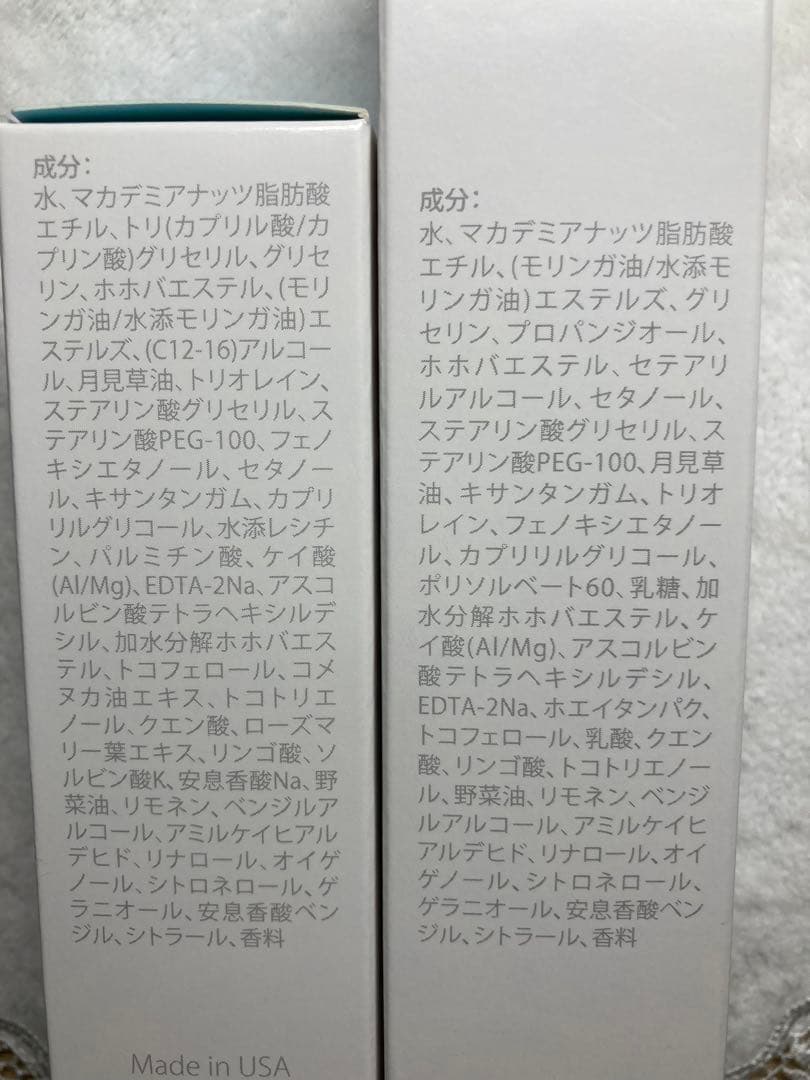 成分:
水、マカデミアナッツ脂肪酸
エチル、トリ(カプリル酸/カ
プリン酸)グリセリル、グリセ
リン、ホホバエステル、(モリ
ンガ油/水添モリンガ油)エ
ステルズ、(C12-16)アルコー
ル、月見草油、トリオレイン、
ステアリン酸グリセリル、ス
テアリン酸PEG-100、フェノ
キシエタノール、セタノー
ル、キサンタンガム、カプリ
リルグリコール、水添レシチ
ン、パルミチン酸、ケイ酸
(Al/Mg)、EDTA-2Na、アスコ
ルビン酸テトラヘキシルデ
シル、加水分解ホホバエス
テル、トコフェロール、コメ
ヌカ油エキス、トコトリエ
ノール、クエン酸、ローズマ
リー葉エキス、リンゴ酸、ソ
ルビン酸K、安息香酸Na、野
菜油、リモネン、ベンジルア
ルコール、アミルケイヒアル
デヒド、リナロール、オイゲ
ノール、シトロネロール、ゲ
ラニオール、安息香酸ベン
ジル、シトラール、香料
Made in USA
成分:
水、マカデミアナッツ脂肪酸
エチル、(モリンガ油/水添モ
リンガ油)エステルズ、グリ
セリン、プロパンジオール、
ホホバエステル、セテアリ
ルアルコール、セタノール、
ステアリン酸グリセリル、ス
テアリン酸PEG-100、月見草
油、キサンタンガム、トリオ
レイン、フェノキシエタノー
ル、カプリリルグリコール、
ポリソルベート60、乳糖、加
水分解ホホバエステル、ケ
イ酸(Al/Mg)、アスコルビン
酸テトラヘキシルデシル、
EDTA-2Na、ホエイタンパク、
トコフェロール、乳酸、クエン
酸、リンゴ酸、トコトリエノー
ル、野菜油、リモネン、ベン
ルアルコール、アミルケイヒ
アルデヒド、リナロール、オイ
ゲノール、シトロネロール、
ゲラニオール、安息香酸ベン
ジル、シトラール、香料